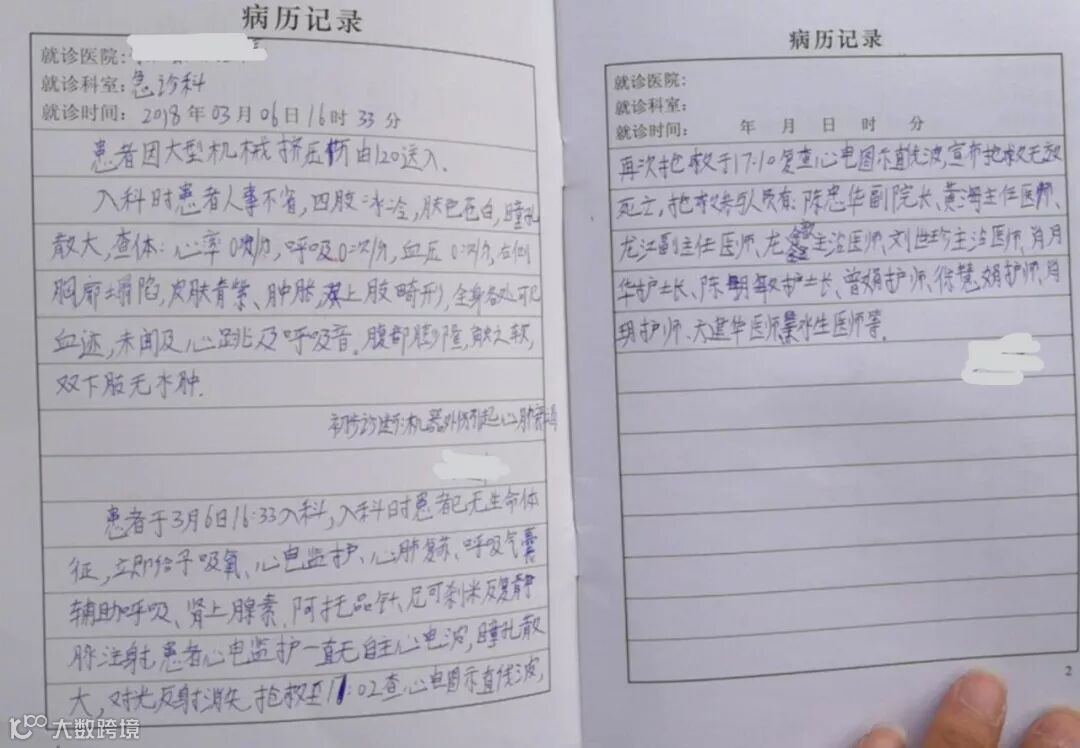 病历记录
就诊医院:
就诊科室: 急诊科
就诊时间: 2018年03月06日16时33分
患者因大型机械挤压伤由120送入.
入科时患者人事不省,四肢冰冷,肤色苍白,瞳孔
散大,查体:心率0次/分,呼吸0次/分,血压0次/分,右侧
胸廓塌陷,皮肤青紫、肿胀,双上肢畸形,全身各处可见
血迹,未闻及心跳及呼吸音.腹部膨隆,触之软,
双下肢无水肿.
初步诊断:机器外伤引起心肺
患者于3月6日16:33入科,入科时患者已无生命体
征,立即给予吸氧、心电监护、心肺复苏、呼吸气囊
辅助呼吸、肾上腺素、阿托品针、尼可刹米反复静
脉注射,患者心电监护一直无自主心电波,瞳孔散
大,对光反射消失.抢救至17:02查心电图示直线波,
病历记录
就诊医院:
就诊科室:
就诊时间: 年 月 日 时 分
再次抢救于17:10复查心电图示直线波,宣布抢救无效
死亡,抢救参与人员有:陈忠华副院长、黄海主任医师、
龙江副主任医师、龙 主治医师、刘世珍主治医师、肖月
华护士长、陈 敏护士长、曾娟护师、徐慧娟护师、肖
玥护师、 建华医师、 水生医师等.
2
大数跨境